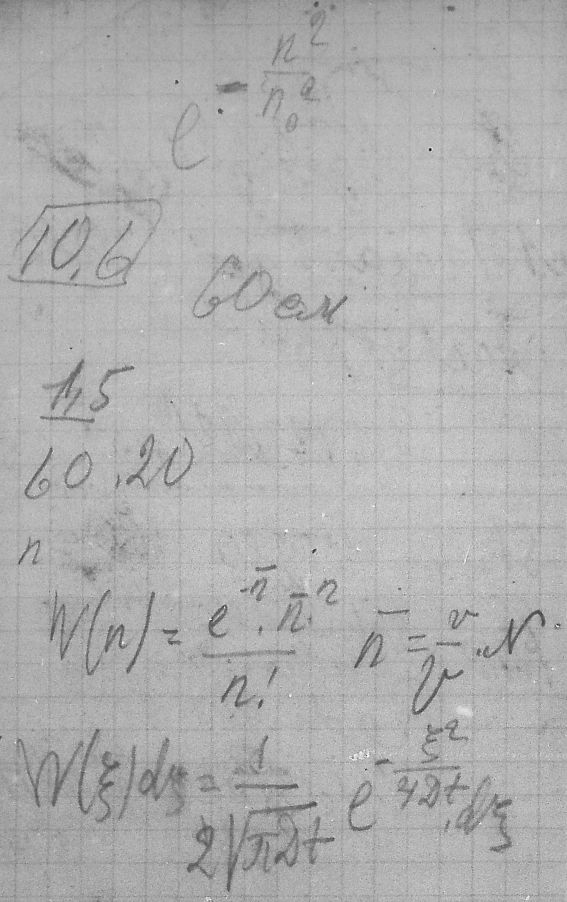 e^{-\frac{n^2}{n_0^2}}
10,6
60 см
1,5
60.20
n
W(n) = \frac{e^{-\bar{n}} . \bar{n}^n}{n!} \bar{n} = \frac{v}{V} . N
W(ξ)dξ = \frac{1}{2\sqrt{πDt}} e^{-\frac{ξ^2}{4Dt}} . dξ